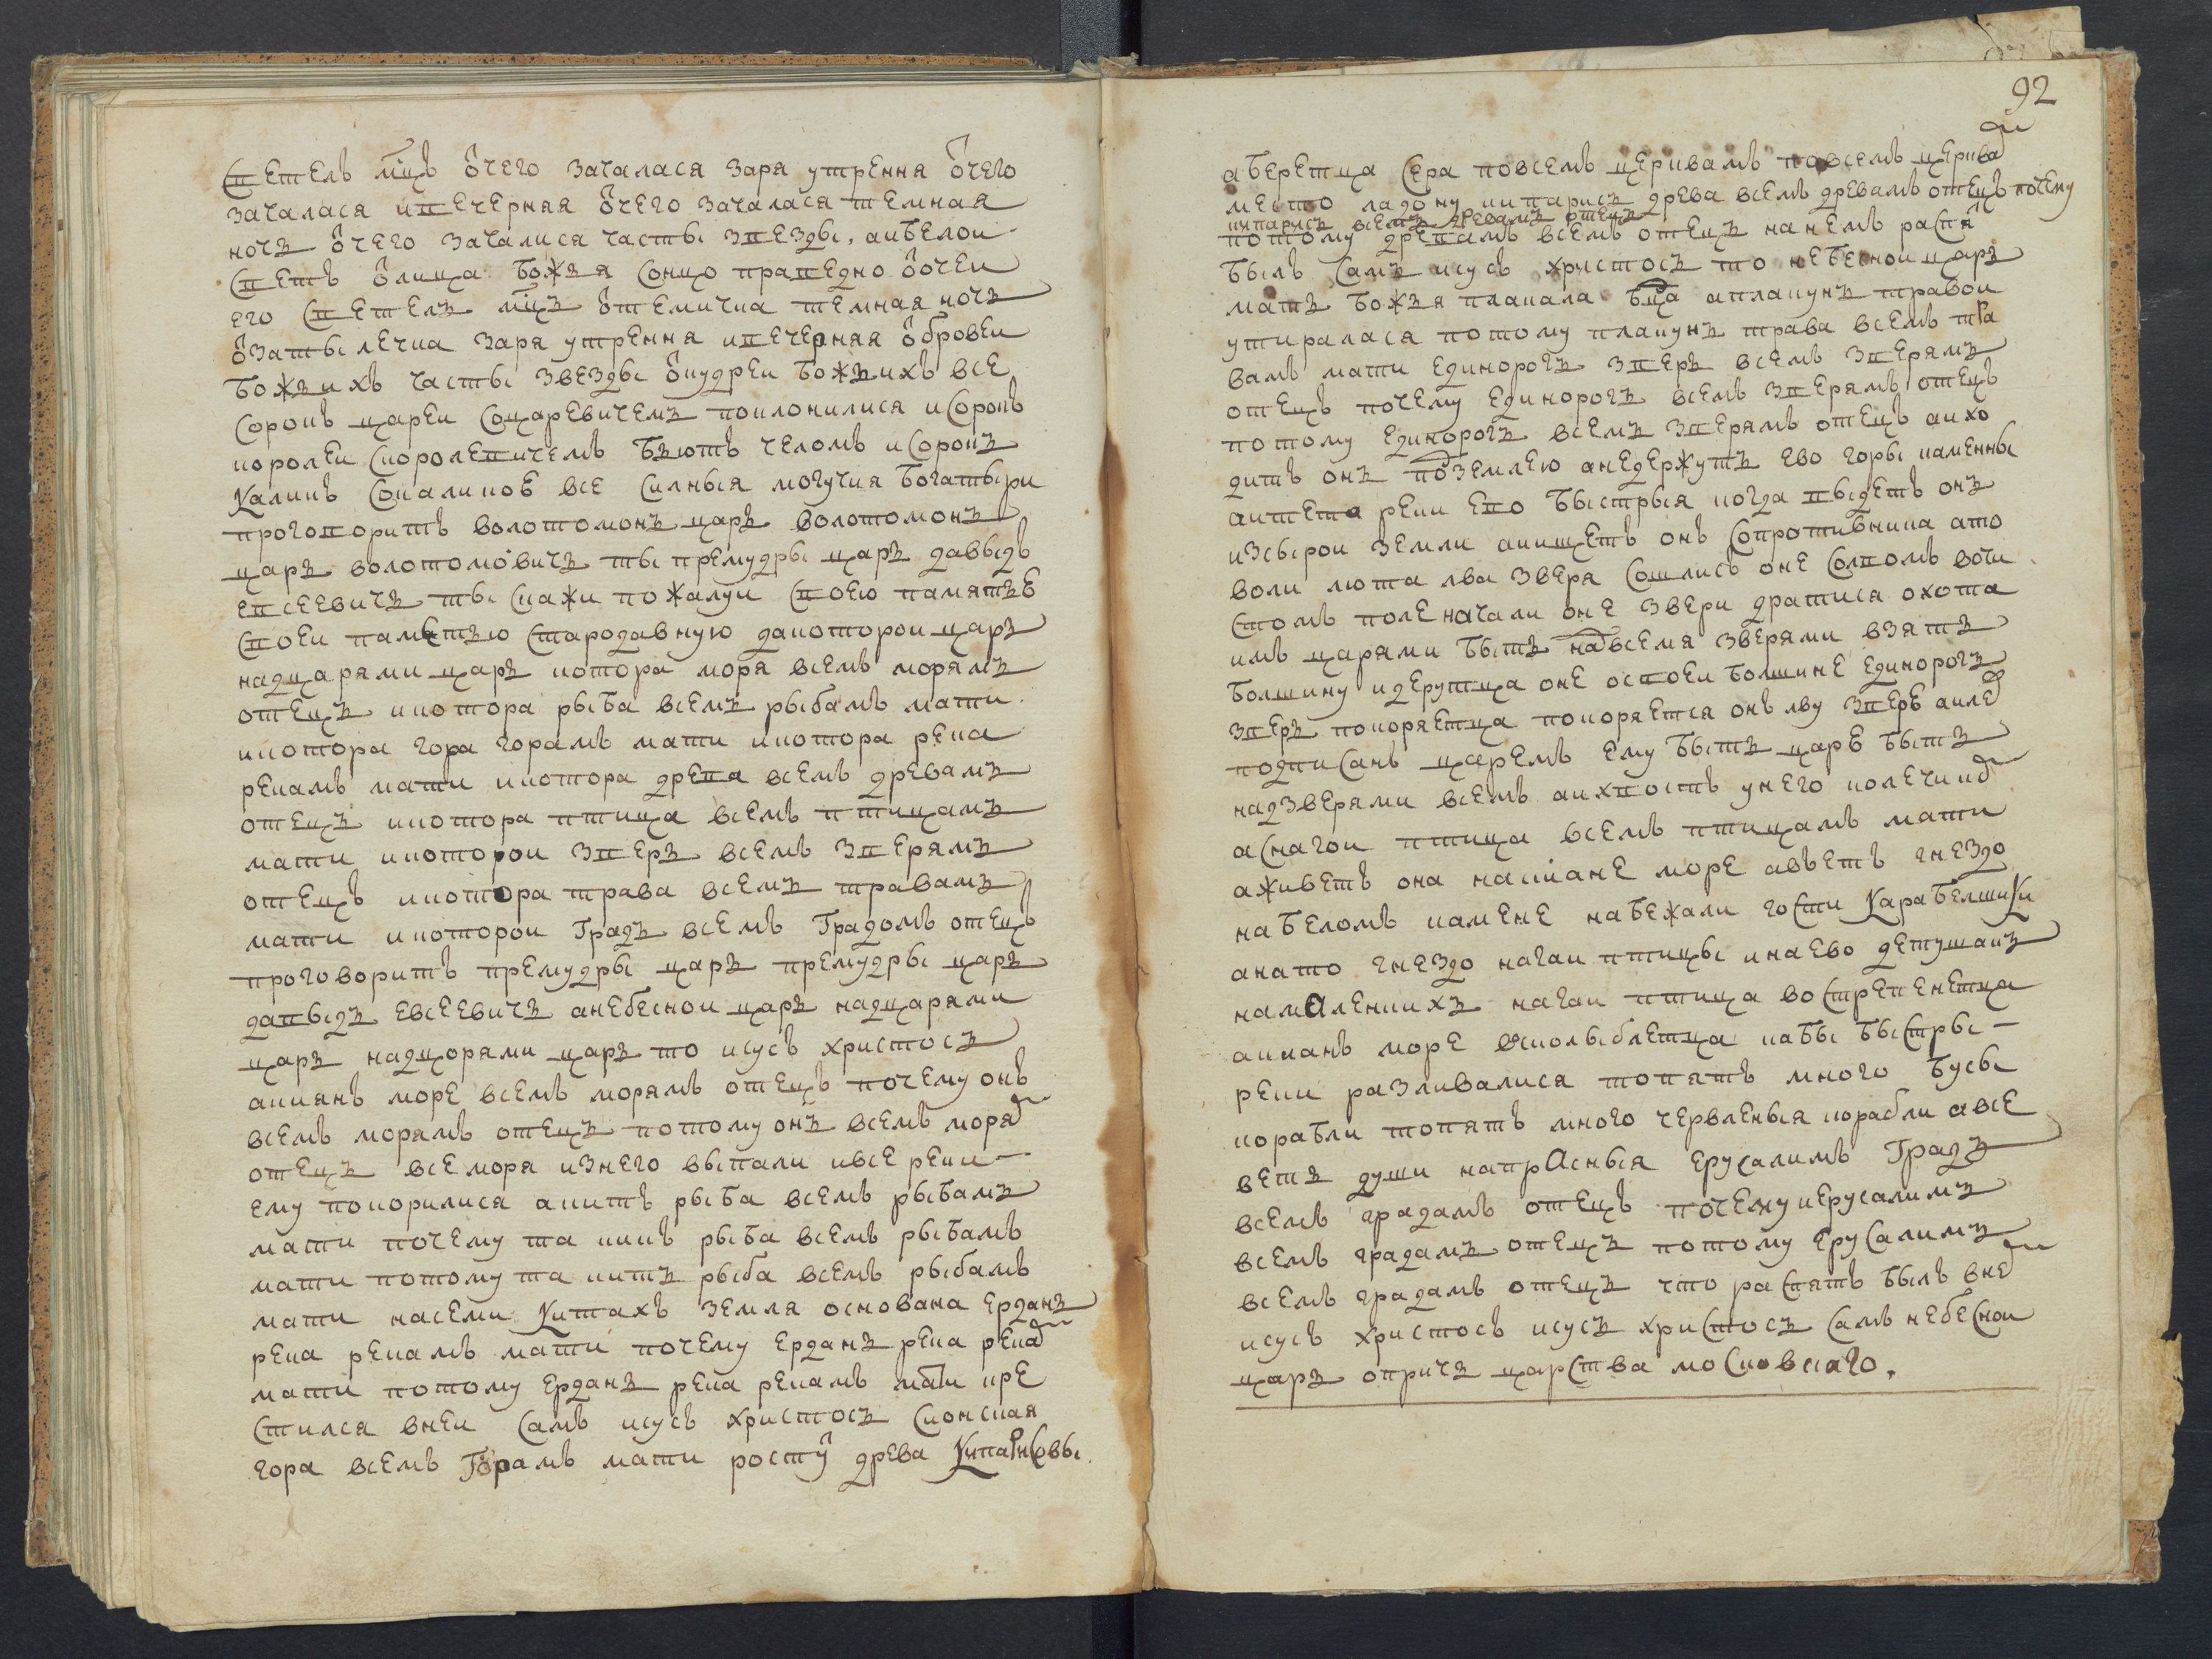 светелъ мцъ ѿчего зачалася заря утрення ѿчего
зачалася ивечерная ѿчего зачалася темная
ночь ѿчего зачалися часты звезды, аибелои
светъ ѿлица божья сонцо праведно ѿочеи
его светель мцъ ѿтемичка темная ночь
ѿзатылечка заря утрення ивечерная ѿбровеи
божьихъ часты звезды ѿкудреи божьихъ все
сорокъ цареи соцаревичемъ поклонилися исорокъ
королеи скоролевичемъ бьютъ челомъ исорокъ
каликъ сокаликов все силныя могучия богатыри
проговоритъ волотомонъ царь волотомонъ
царь волотомовичь ты премудры царь давыдъ
евсеевичь ты скажи пожалуи своею памятью
своеи паметью стародавную дакоторои царь
надцарями царь котора моря всемъ морямъ
отецъ икотора рыба всемъ рыбамъ мати
икотора гора горамъ мати икотора река
рекамъ мати икотора древа всемъ древамъ
отецъ икотора птица всемъ птицамъ
мати икоторои зверь всемъ зверямъ
отецъ икотора трава всемъ травамъ
мати икоторои градъ всемъ градомъ отецъ
проговоритъ премудры царь премудры царь
давыдъ евсеевичь анебеснои царь надцарями
царь надцорями царь то исусъ христосъ
акиянъ море всемъ морямъ отецъ почему онъ
всемъ морямъ отецъ потому онъ всемъ моря
отецъ все моря изнего выпали ивсе реки
ему покорилися акитъ рыба всемъ рыбамъ
мати почему та китъ рыба всемъ рыбамъ
мати потому та китъ рыба всемъ рыбамъ
мати насеми китахъ земля основана ерданъ
река рекамъ мати почему ерданъ река река
мати потому ерданъ река рекамъ мати кре
стился внеи самъ исусъ христосъ сионская
гора всемъ горамъ мати росту древа кипарисовы
92
аберетца сера повсемъ церквамъ повсемъ церква
место ладону кипарисъ древа всемъ древамъ отецъ почему
кипарисъ всемъ древамъ отецъ
потому древамъ всемъ отецъ нанемъ распя
былъ самъ исусъ христосъ то небеснои царь
мать божья плакала бца аплакунъ травои
утиралася потому плакунъ трава всемъ тра
вамъ мати единорогъ зверь всемъ зверямъ
отецъ почему единорогъ всемъ зверямъ отецъ
потому единорогъ всемъ зверямъ отецъ аихо
дитъ онъ подземлею анедержутъ ево горы каменны
аитета реки ево быстрыя когда выдетъ онъ
изсырои земли аищетъ онъ сопротивника ато
воли люта лва зверя сошлись оне солвомъ вочи
стомъ поле начали оне звери дратися охота
имъ царями быть надвсемя зверями взять
болшину идерутца оне освоеи болшине единорогъ
зверь покоряетца покоряется онъ лву зверю аиле
подписанъ царемъ ему быть царю быть
надзверями всемъ аихвостъ унего колечико
аснагои птица всемъ птицамъ мати
аживетъ она накиане море авьетъ гнездо
набеломъ камене набежали гости карабелщики
анато гнездо нагаи птицы инаево детушакъ
намаленкихъ нагаи птица востреπенетца
акианъ море восколыблетца кабы быстры
реки разливалися топятъ много бусы
корабли топятъ много червленыя корабли авсе
веть души напрасныя ерусалимъ градъ
всемъ градамъ отецъ почему иерусалимъ
всемъ градамъ отецъ потому ерусалимъ
всемъ градамъ отецъ что распятъ былъ вне
исусъ христосъ исусъ христосъ самъ небеснои
царь опричь царства московскаго.